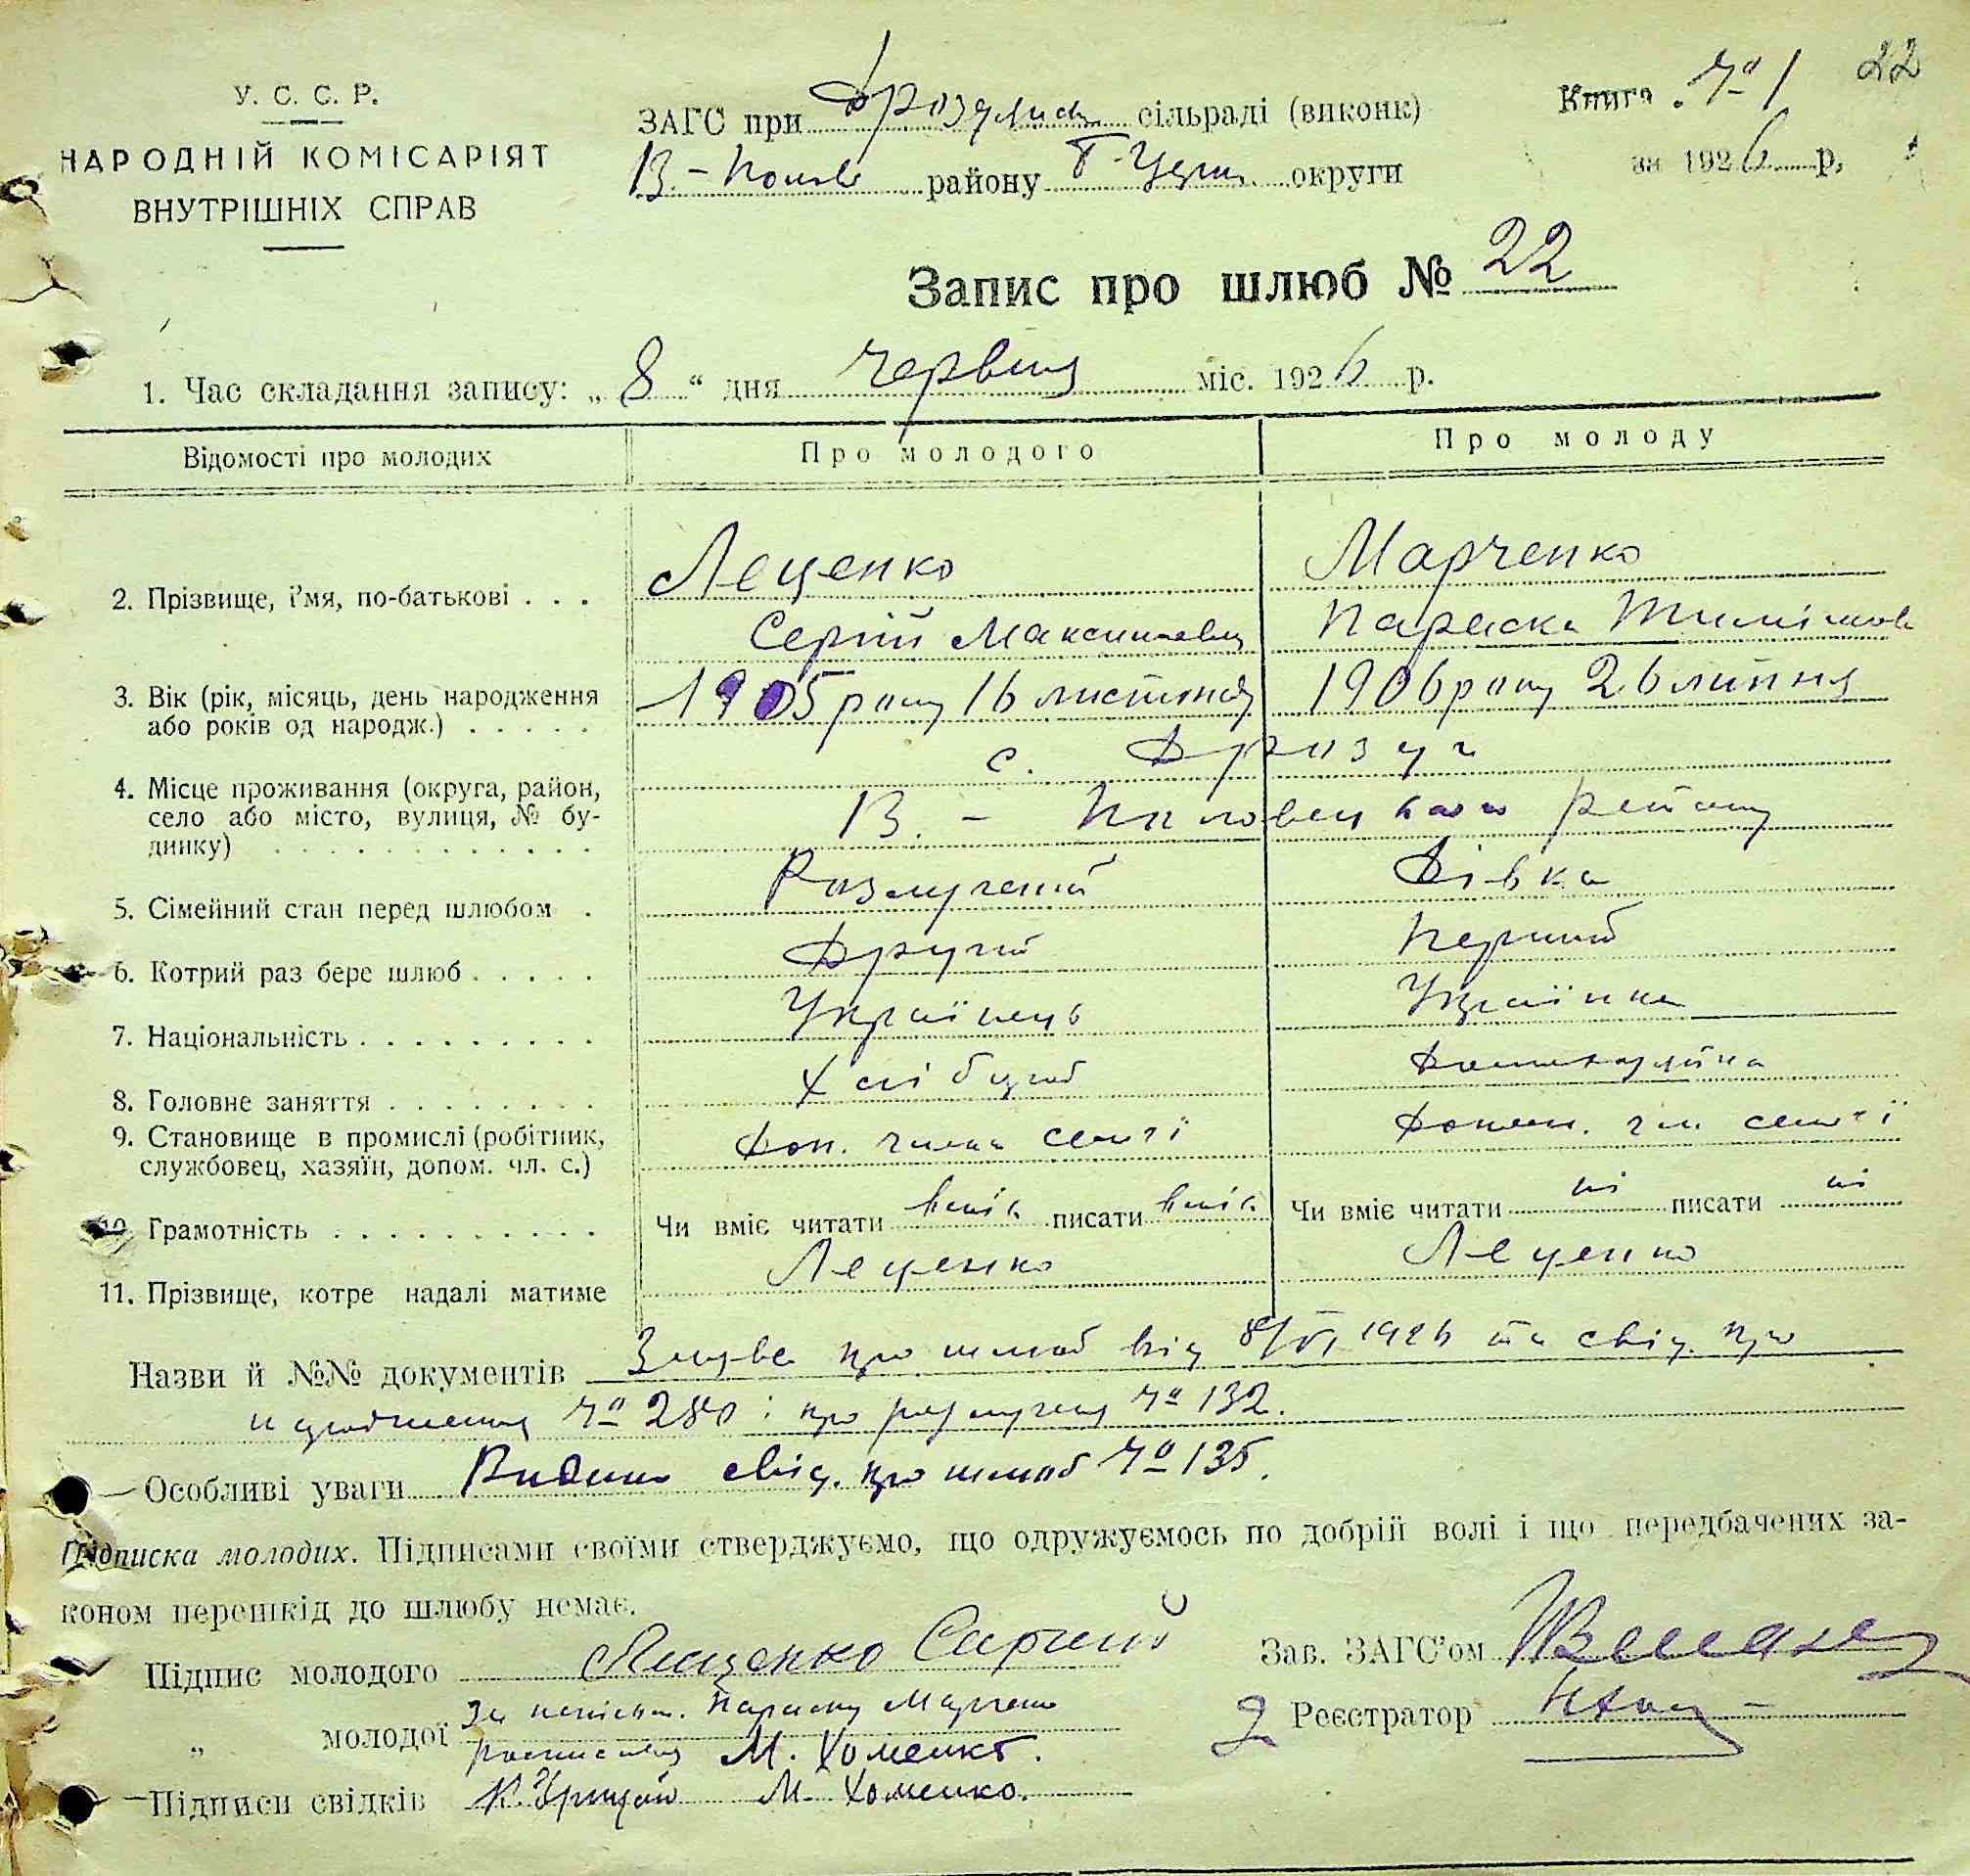 У. С. С. Р.
НАРОДНІЙ КОМІСАРІЯТ
ВНУТРІШНІХ СПРАВ
ЗАГС при сільраді (виконк)
району округи
Книга № 1 22
за 1926 р.
Запис про шлюб № 22
1. Час складання запису: „ 8 “ дня червня міс. 1926 р.
Відомості про молодих Про молодого Про молоду
2. Прізвище, і'мя, по-батькові . . . Лещенко Марченко
Сергій Максимович Параска
3. Вік (рік, місяць, день народження 1905 року 16 листопад 1906 року 26 липня
або років од народж.) . . . . .
4. Місце проживання (округа, район, с. Дрозди
село або місто, вулиця, № бу- В. - Половецького району
динку) . . . . . . . . . . . . .
5. Сімейний стан перед шлюбом . Розлучений Дівка
6. Котрий раз бере шлюб . . . . . Другий Перший
7. Національність . . . . . . . . . Українець Українка
8. Головне заняття . . . . . . . . Хлібороб
9. Становище в промислі (робітник, Доп. члена семї чл. семї
службовец, хазяїн, допом. чл. с.)
10. Грамотність . . . . . . . . . . Чи вміє читати вміє писати вміє Чи вміє читати ні писати ні
11. Прізвище, котре надалі матиме Лещенко Лещенко
Назви й №№ документів Заява про шлюб від 8/VI 1926 та свід. про
№ 280 і про розлучення № 132.
Особливі уваги Видано свід. про шлюб № 135.
Підписка молодих. Підписами своїми стверджуємо, що одружуємось по добрій волі і що передбачених за-
коном перешкід до шлюбу немає.
Підпис молодого Лещенко Сергий Зав. ЗАГС'ом
За неписьм. Параску Марченко Реєстратор
„ молодої М. Хоменко.
Підписи свідків М. Хоменко.